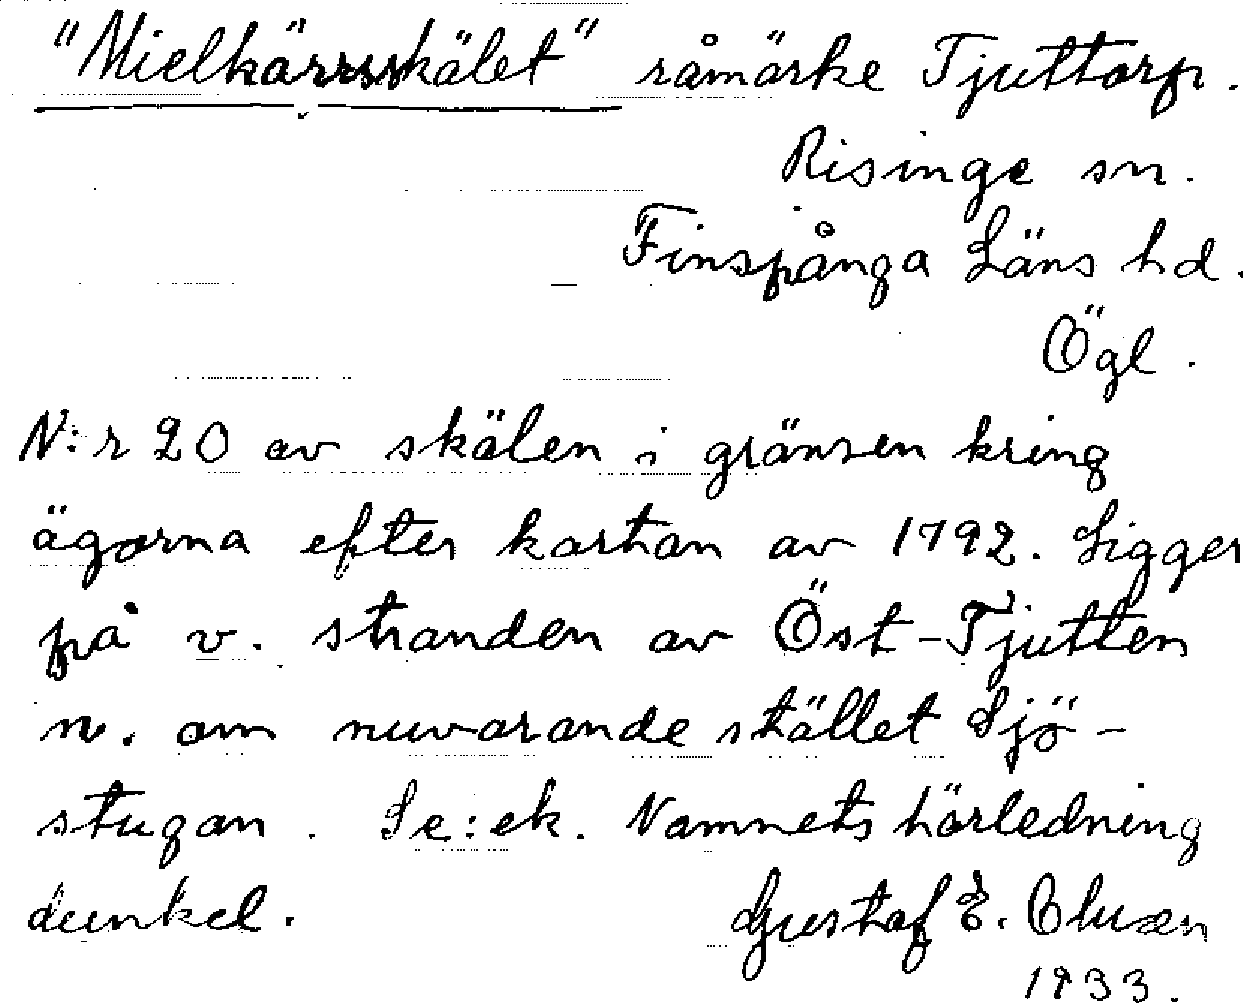 "Mielkärrsskälet" råmärke Tjuttorp.
Risinge sn.
Finspånga Läns hd.
Ögl.
N:r 20 av skälen i gränsen kring
ägorna efter kartan av 1792. Ligger
på v. stranden av Öst-Tjutten
n. om nuvarande stället Sjö-
stugan. Se: ek. Namnets härledning
dunkel. Gustaf E.
1933.